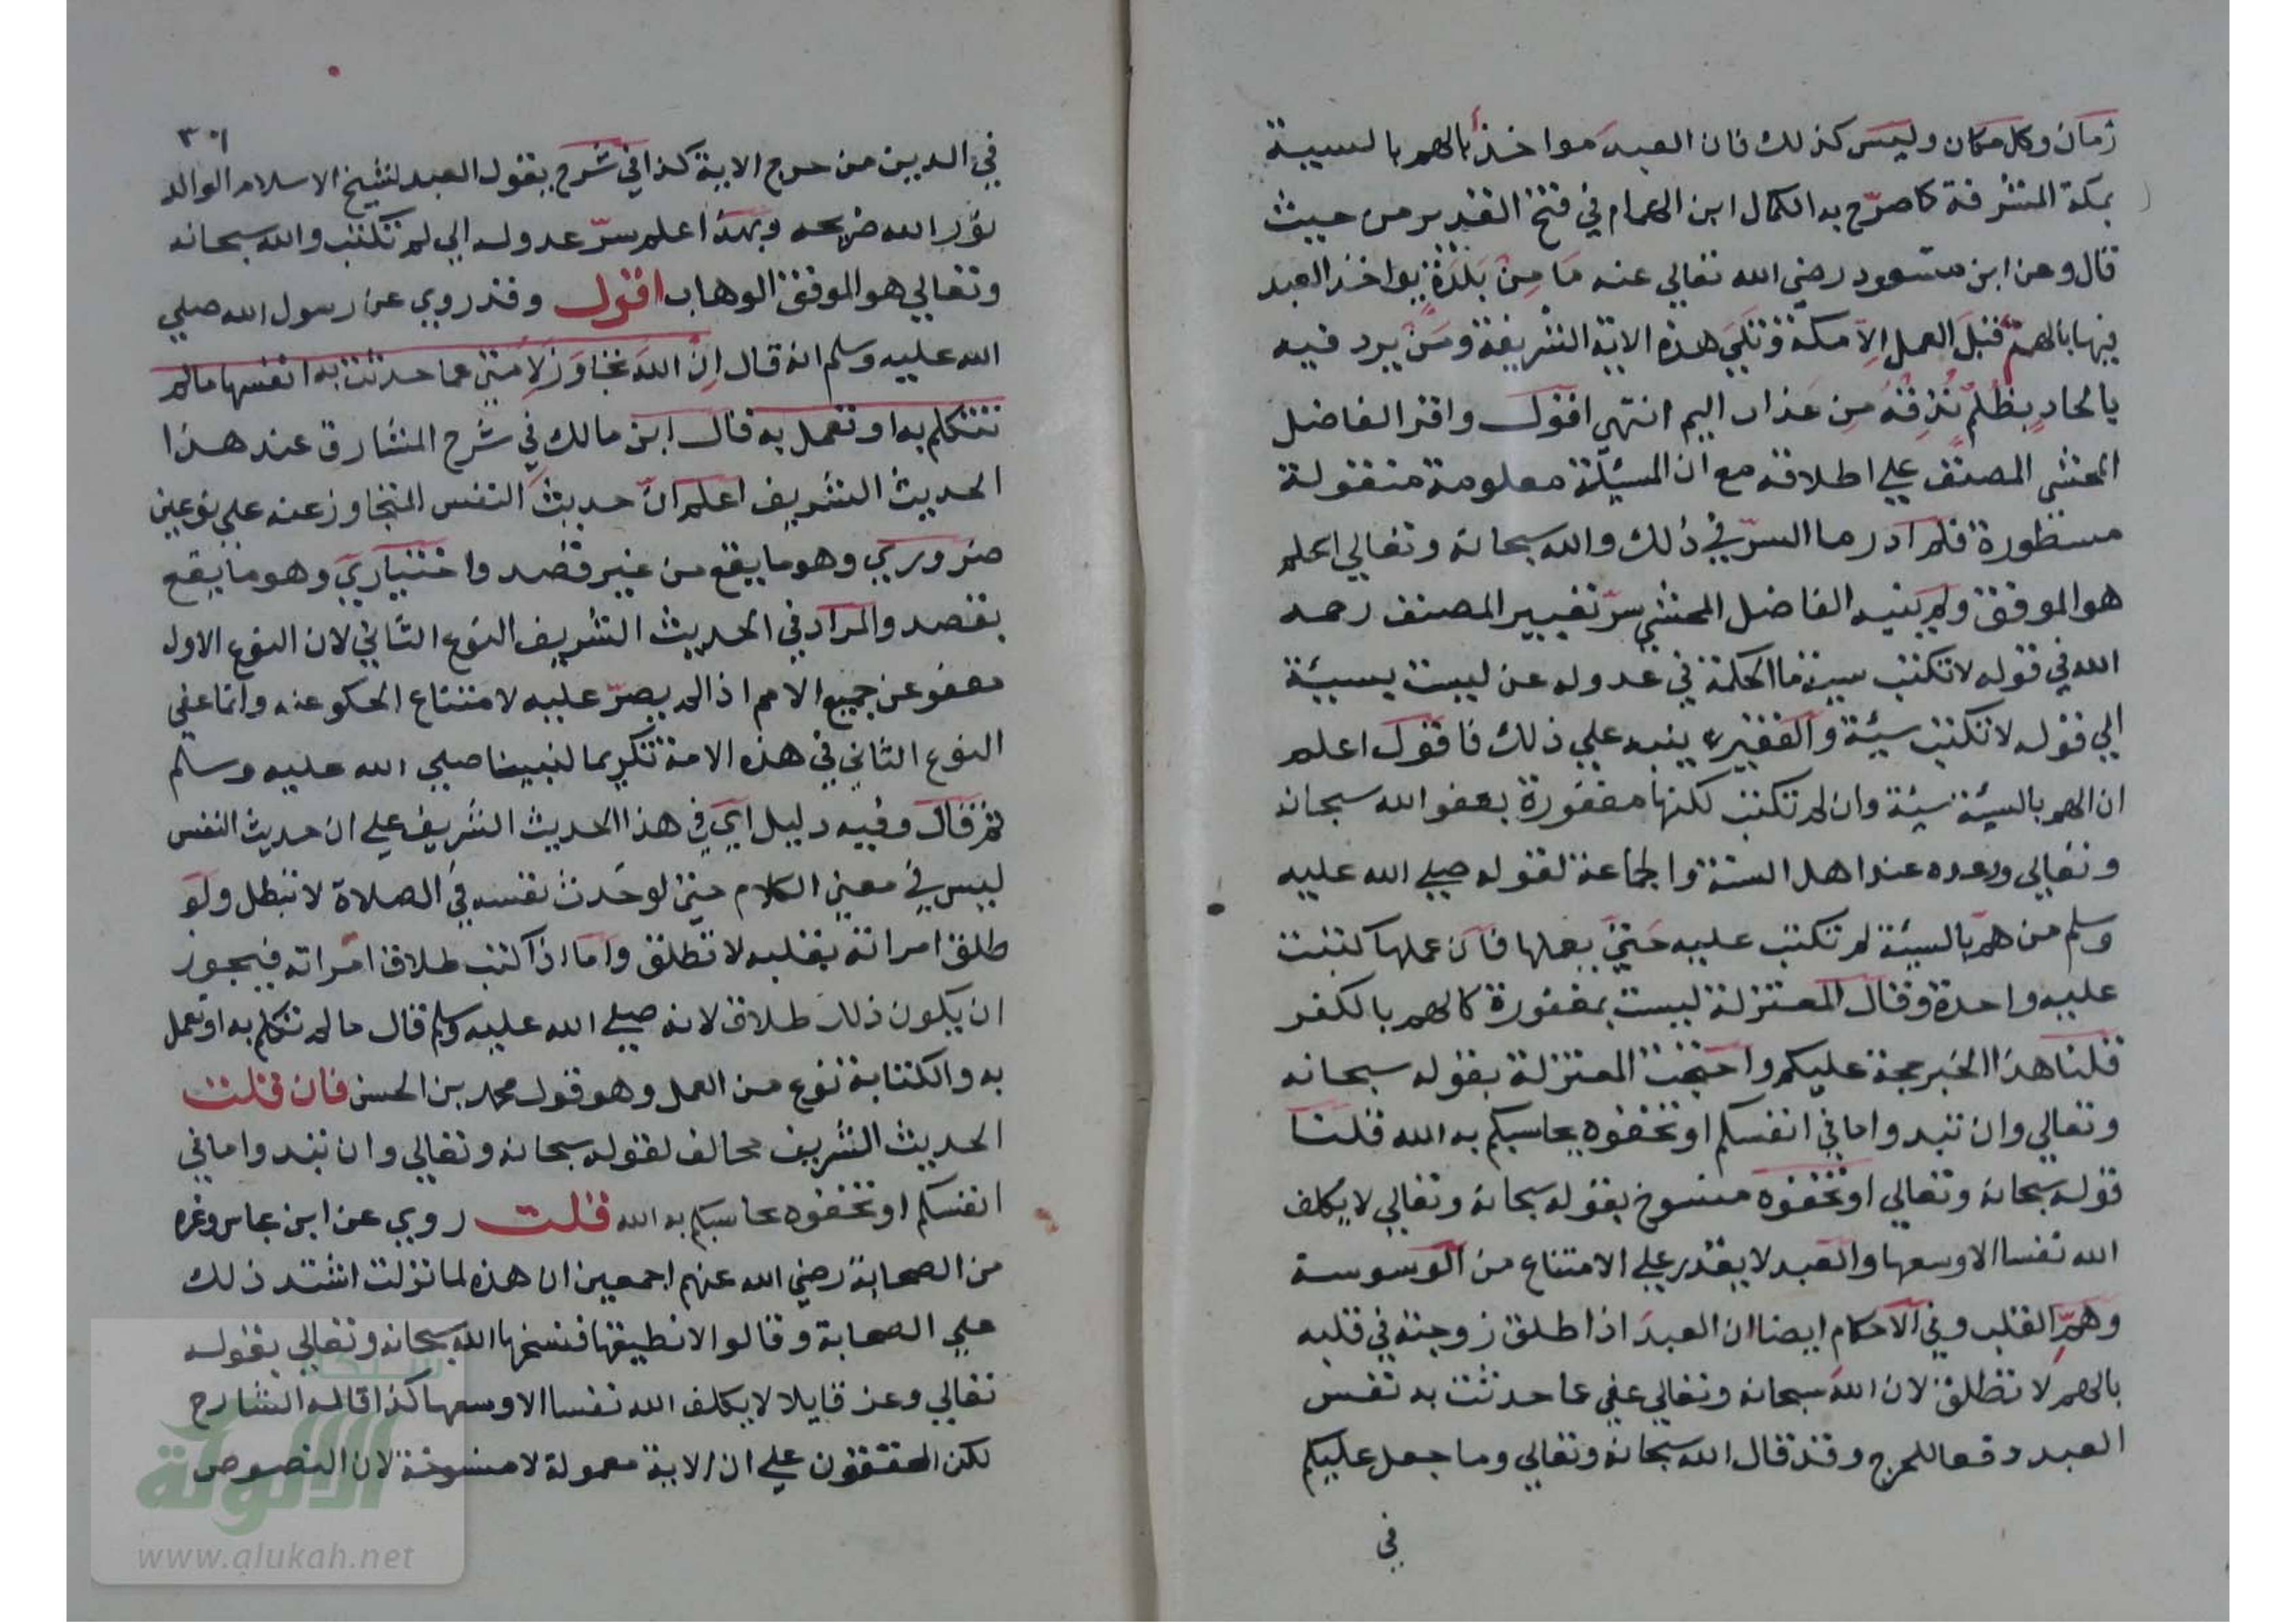 زمان وكل مكان وليس كذلك فان العبد مواخذ بالهم بالسيئة
بمكة المشرفة كما صرّح به الكمال ابن الهمام في فتح القدير من حيث
قال وعن ابن مسعود رضي الله تعالي عنه مَا مِنْ بَلدَةٍ يواخذ العبد
فيها بالهمّ قبْلَ العمل الِاّ مكة وَتليَ هذه الاية الشريفة ومَنْ يرد فيه
بالحادٍ بظُلمٍ نُذِقهُ مِن عَذاب اليم انتهي اقول واقر الفاضل
المحشي المصنف علي اطلاقه مع ان المسئلة معلومة منقولة
مسطورة فلم ادر ما السرّ في ذلك والله سبحانه وتعالي اعلم
هو الموفق ولم ينبه الفاضل المحشي سرّ تغيير المصنف رحمه
الله في قوله لا تكتب سيئة ما الحكمة في عدوله عن ليست بسيئة
الي قوله لا تكتب سيئة والفقير ينبه علي ذلك فاقول اعلم
ان الهم بالسيئة سيئة وان لم تكتب لكنها مغفورة بعفو الله سبحانه
وتعالي ووعده عند اهل السنة والجماعة لقوله صلي الله عليه
وسلم من همّ بالسيئة لم تكتب عليه حَتيّ يعملها فان عملها كتبت
عليه واحدة وقال المعتزلة ليست بمغفورة كالهم بالكفر
قلنا هذا الخبر حجة عليكم واحتجت المعتزلة بقوله سبحانه
وتعالي وان تبدوا ما في انفسكم او تخفوه يحاسبكم به الله قلنا
قوله سبحانه وتعالي او تخفوه منسوخ بقوله سبحانه وتعالي لا يكلف
الله نفسا الا وسعها والعبد لا يقدر علي الامتناع من الوسوسة
وهمِّ القلب وفي الاحكام ايضا ان العبدَ اذا طلق زوجته في قلبه
بالهم لا تطلق لان اللهَ سبحانه وتعالي عفي عما حدثت به نفس
العبد دفعا للحرج وقد قال الله سبحانه وتعالي وما جعل عليكم
في
٣٠١
في الدين من حرج الاية كذا في شرح يقول العبد لشيخ الاسلام الوالد
نوّر الله ضريحه وبهذا علم سرّ عدوله الي لم تكتب والله سبحانه
وتعالي هو الموفق الوهاب اقول وقد روي عن رسول الله صلي
الله عليه وسلم انه قال اِنَّ اللهَ تجَاوَزَ لِاُمتي عما حدثت به انفسها ما لم
تتكلم به او تعمل به قال ابن مالك في شرح المشارق عند هذا
الحديث الشريف اعلم انّ حديث النفس المتجاوز عنه علي نوعين
ضروري وهو ما يقع من غير قصد واختياري وهو ما يقع
بقصد والمراد في الحديث الشريف النوع الثاني لان النوع الاول
معفو عن جميع الامم اذا لم يصرّ عليه لامتناع الحكو عنه وانما عفي
النوع الثاني في هذه الامة تكريما لنبينا صلي الله عليه وسلم
ثم قال وفيه دليل اي في هذا الحديث الشريف علي ان حديث النفس
ليس في معني الكلام حتي لو حَدث نفسه في الصلاة لا تبطل ولو
طلق امراته بقلبه لا تطلق واما اذا كتب طلاق امراته فيجوز
ان يكون ذلك طلاق لانه صلي الله عليه وسلم قال ما لم تتكلم به او تعمل
به والكتابة نوع من العمل وهو قول محمد بن الحسن فان قلت
الحديث الشريف مخالف لقوله سبحانه وتعالي وان تبدوا ما في
انفسكم او تخفوه يحاسبكم به الله قلت روي عن ابن عباس وغيره
من الصحابة رضي الله عنهم اجمعين ان هذه لما نزلت اشتد ذلك
علي الصحابة وقالوا لا نطيقها فنسخها الله سبحانه وتعالي بقوله
تعالي وعز قايلا لا يكلف الله نفسا الا وسعها كذا قاله الشارح
لكن المحققون علي ان الاية معمولة لا منسوخة لان النصوص
شبكة
الألوكة
www.alukah.net